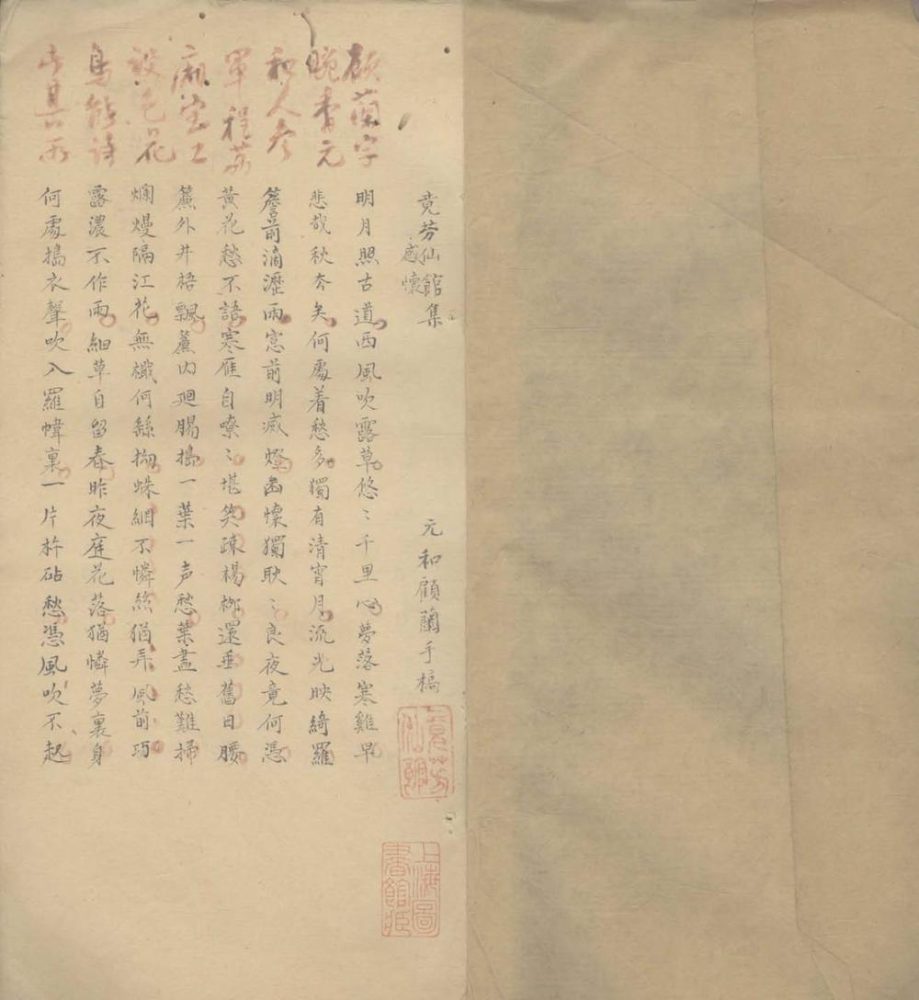 竟芳仙館集
感懷
元和顧蘭手槁
竟芳仙館
上海圖書館藏
顧蘭字
畹香元
和人參
軍程
室工
設色花
鳥能詩
此其
明月照古道西風吹露草悠〻千里心夢落寒雞早
悲哉秋矣何處着愁多獨有清宵月流光映綺羅
簷前滴瀝雨窓前明滅燈幽懷獨耿〻良夜竟何憑
黃花愁不語寒雁自嘹〻堪笑疎楊栁還垂舊日腰
簾外井梧飄簾内廻腸搗一葉一声愁葉盡愁難掃
爛熳隔江花無檥何繇掬蛛網不憐絲猶弄風前巧
露濃不作雨細草自留春昨夜庭花落猶憐夢裏身
何處搗衣聲吹入羅幃裏一片杵砧愁憑風吹不起